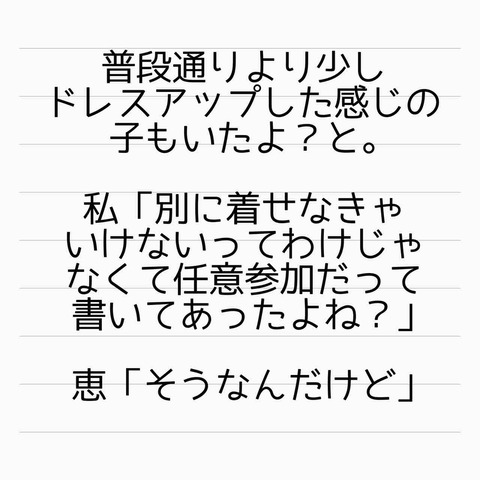 普段通りより少し
ドレスアップした感じの
子もいたよ？と。
私「別に着せなきゃ
いけないってわけじゃ
なくて任意参加だって
書いてあったよね？」
恵「そうなんだけど」